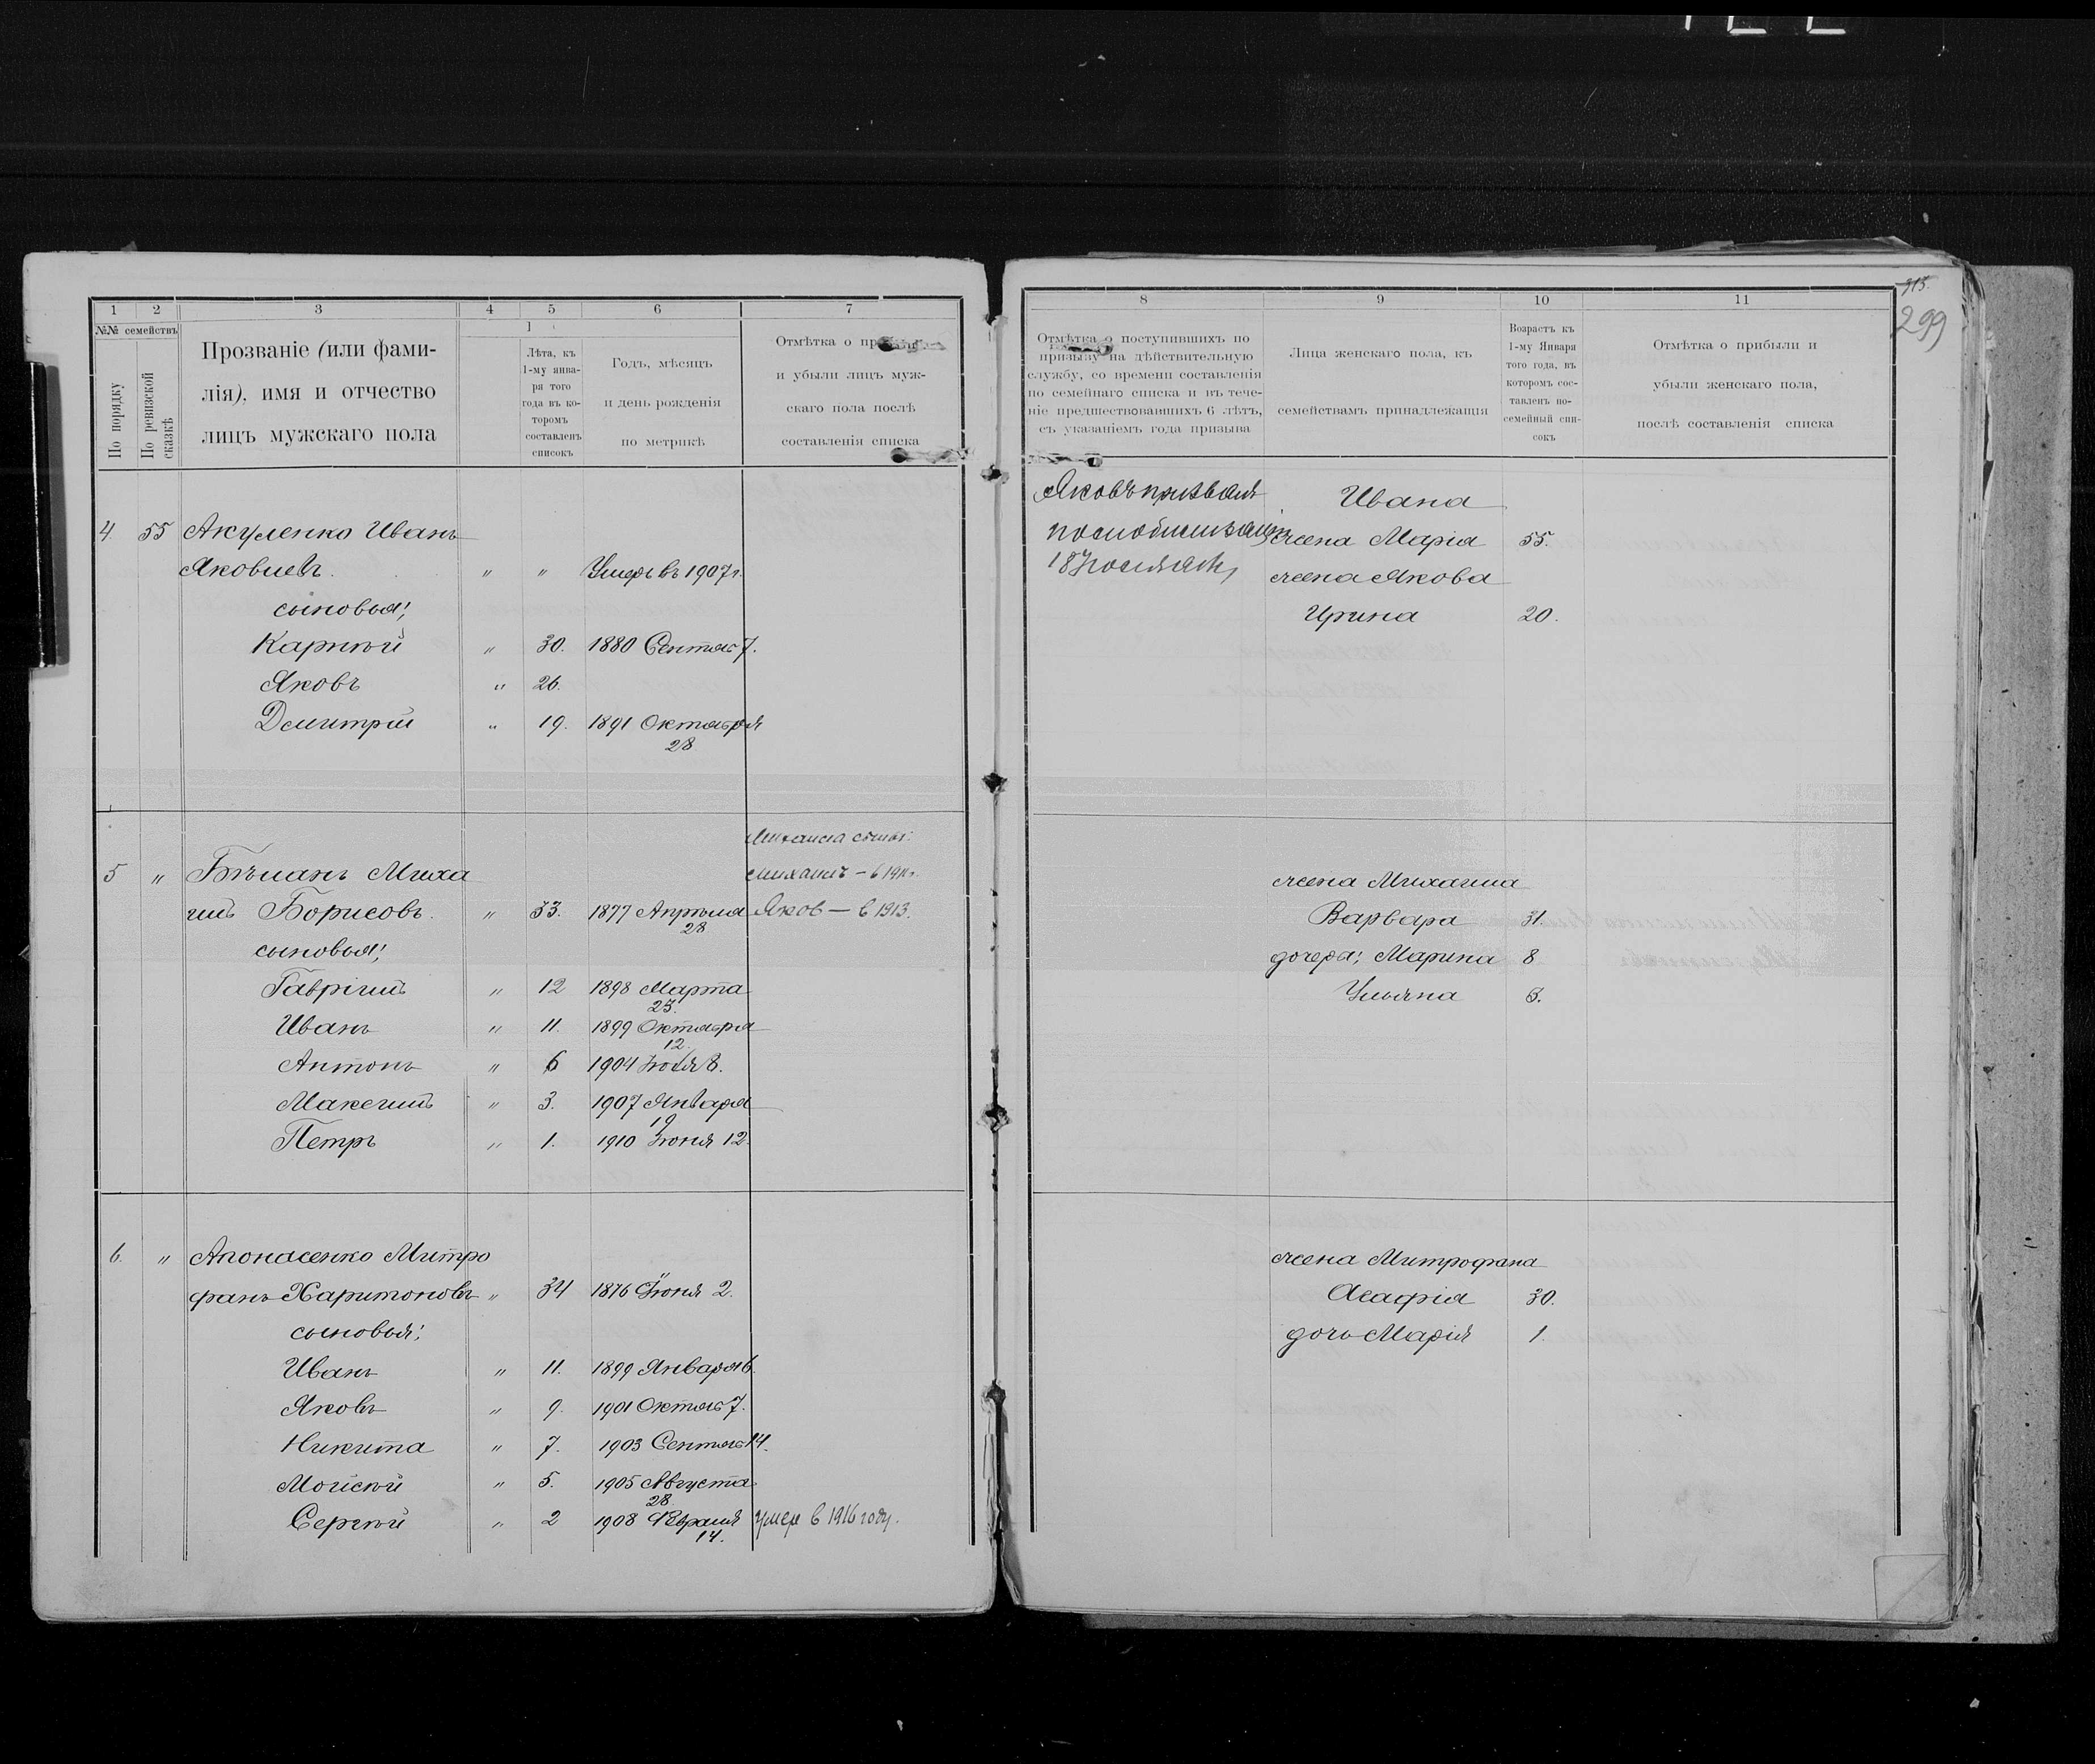 1 2 3 4 5 6 7
№№ семействъ
По порядку
По ревизской сказкѣ
Прозваніе (или фами-
лія), имя и отчество
лицъ мужскаго пола
Лѣта, къ
1-му янва-
ря того
года въ ко-
торомъ
составленъ
списокъ
Годъ, мѣсяцъ
и день рожденія
по метрикѣ
Отмѣтка о
и убыли лицъ муж-
скаго пола послѣ
составленія списка
4. 55 Акуленко Иванъ
Яковлевъ. " " Умеръ въ 1907 г.
сыновья;
Карпѣй " 30. 1880 Сентяб 7.
Яковъ " 26.
Дмитрій " 19. 1891 Октября
28
Михаила сынъ:
5 " Бѣланъ Миха Михаилъ – в 1911 г.
илъ Борисовъ. " 33. 1877 Апрѣля Яков — в 1913.
28
сыновья;
Гавріилъ " 12 1898 Марта
25.
Иванъ " 11. 1899 Октября
12.
Антонъ " 6 1904 Іюля 8.
Максимъ " 3. 1907 Января
19
Петръ " 1. 1910 Іюня 12.
6. " Апонасенко Митро
фанъ Харитоновъ " 34 1876 Іюня 2.
сыновья;
Иванъ " 11. 1899 Января 6.
Яковъ " 9. 1901 Октяб 7.
Никита " 7. 1903 Сентяб 14.
Моисѣй " 5. 1905 Августа
28.
Сергѣй " 2 1908 Февраля умер в 1916 году.
14.
315.
299
8 9 10 11
Отмѣтка о поступившихъ по
призыву на дѣйствительную
службу, со времени составленія
по семейнаго списка и въ тече-
ніе предшествовавшихъ 6 лѣтъ,
съ указаніемъ года призыва
Лица женскаго пола, къ
семействамъ принадлежащія
Возрастъ къ
1-му Января
того года, въ
которомъ сос-
тавленъ по-
семейный спи-
сокъ
Отмѣтка о прибыли и
убыли женскаго пола,
послѣ составленія списка
Яковъ призванъ
по мобилизаціи
18
Ивана
жена Марія 55.
жена Якова
Ирина 20.
жена Михаила
Варвара 31.
дочери; Марина 8
Ульяна 6.
жена Митрофана
Агафія 30.
дочь Марія 1.